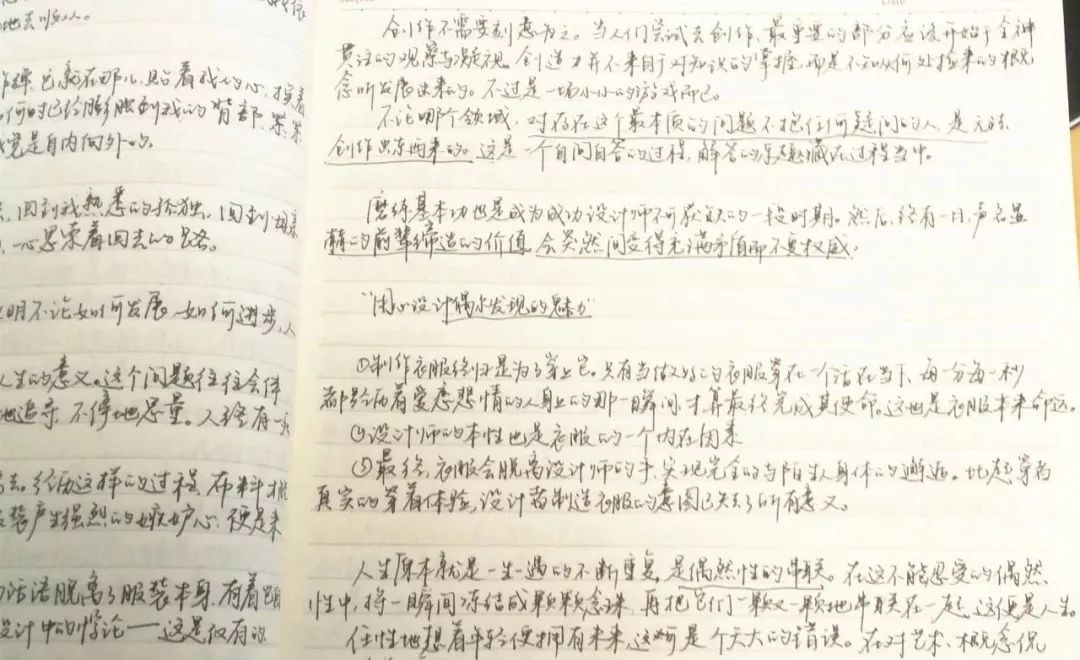 地去顺从。
就在那儿,贴着我的心,挨着
何时已经膨胀到我的背部,紧紧
觉是自内而外的。
回到我熟悉的孤独,回到
一心思索着回去的路。
明不论如何发展、如何进步,人
人生的意义。这个问题往往会伴
地追寻,不停地思量。人终有一
去。经历这样的过程,布料才
装产生强烈的嫉妒心,硬是来
话语脱离了服装本身,有着
设计中的悖论——这是仅有的
创作不需要刻意为之。当人们尝试去创作,最重要的部分应该开始于全神
贯注的观察与凝视。创造力并不来自于对知识的掌握,而是不知从何处捡来的概
念所发展出来的。不过是一场小小的游戏而已。
不论哪个领域,对存在这个最本质的问题不抱任何疑问的人,是无法
创作出东西来的。这是一个自问自答的过程,解答的乐趣藏在过程当中。
磨练基本功也是成为成功设计师不可获缺的一段时期。然后,终有一日,声名显
赫的前辈缔造的价值,会突然间变得充满矛盾而不复权威。
“用心设计偶尔发现的魅力”
①制作衣服终归是为了穿上它。只有当做好的衣服穿在一个活在当下,每一分每一秒
都经历着爱恋悲情的人身上的那一瞬间,才算最终完成其使命。这也是衣服本来命运。
②设计师的本性也是衣服的一个内在因素
③最终,衣服会脱离设计师的手,实现完全的与陌生人身体的邂逅。比起穿着
真实的穿着体验,设计者制造衣服的意图已失去了所有意义。
人生原本就是一生一遇的不断重复,是偶然性的串联。在这不能忍受的偶然
性中,将一瞬间冻结成颗颗念珠,再把它们一颗又一颗地串联在一起,这便是人生。
任性地想着年轻便拥有未来,这可是个天大的错误。在对艺术、概念侃